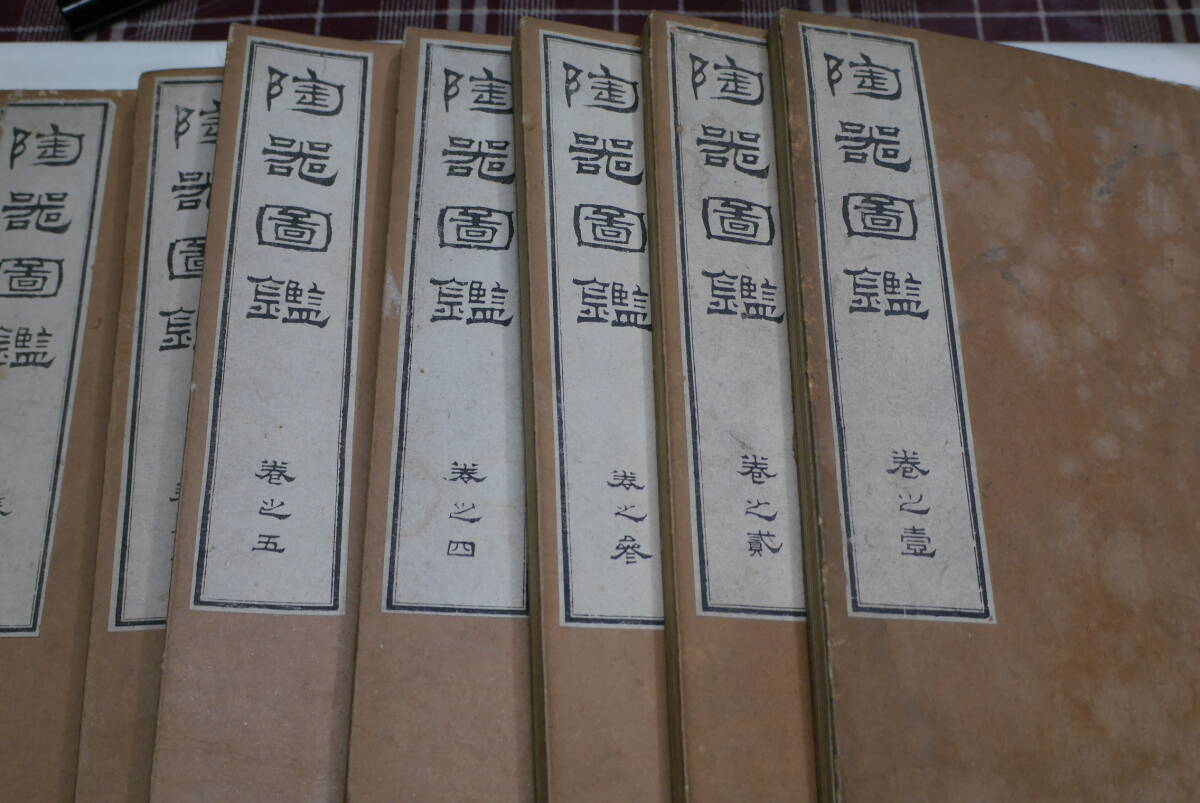 陶器圖鑑
卷之壹
陶器圖鑑
卷之貳
陶器圖鑑
卷之參
陶器圖鑑
卷之四
陶器圖鑑
卷之五
陶器圖鑑
陶器圖鑑